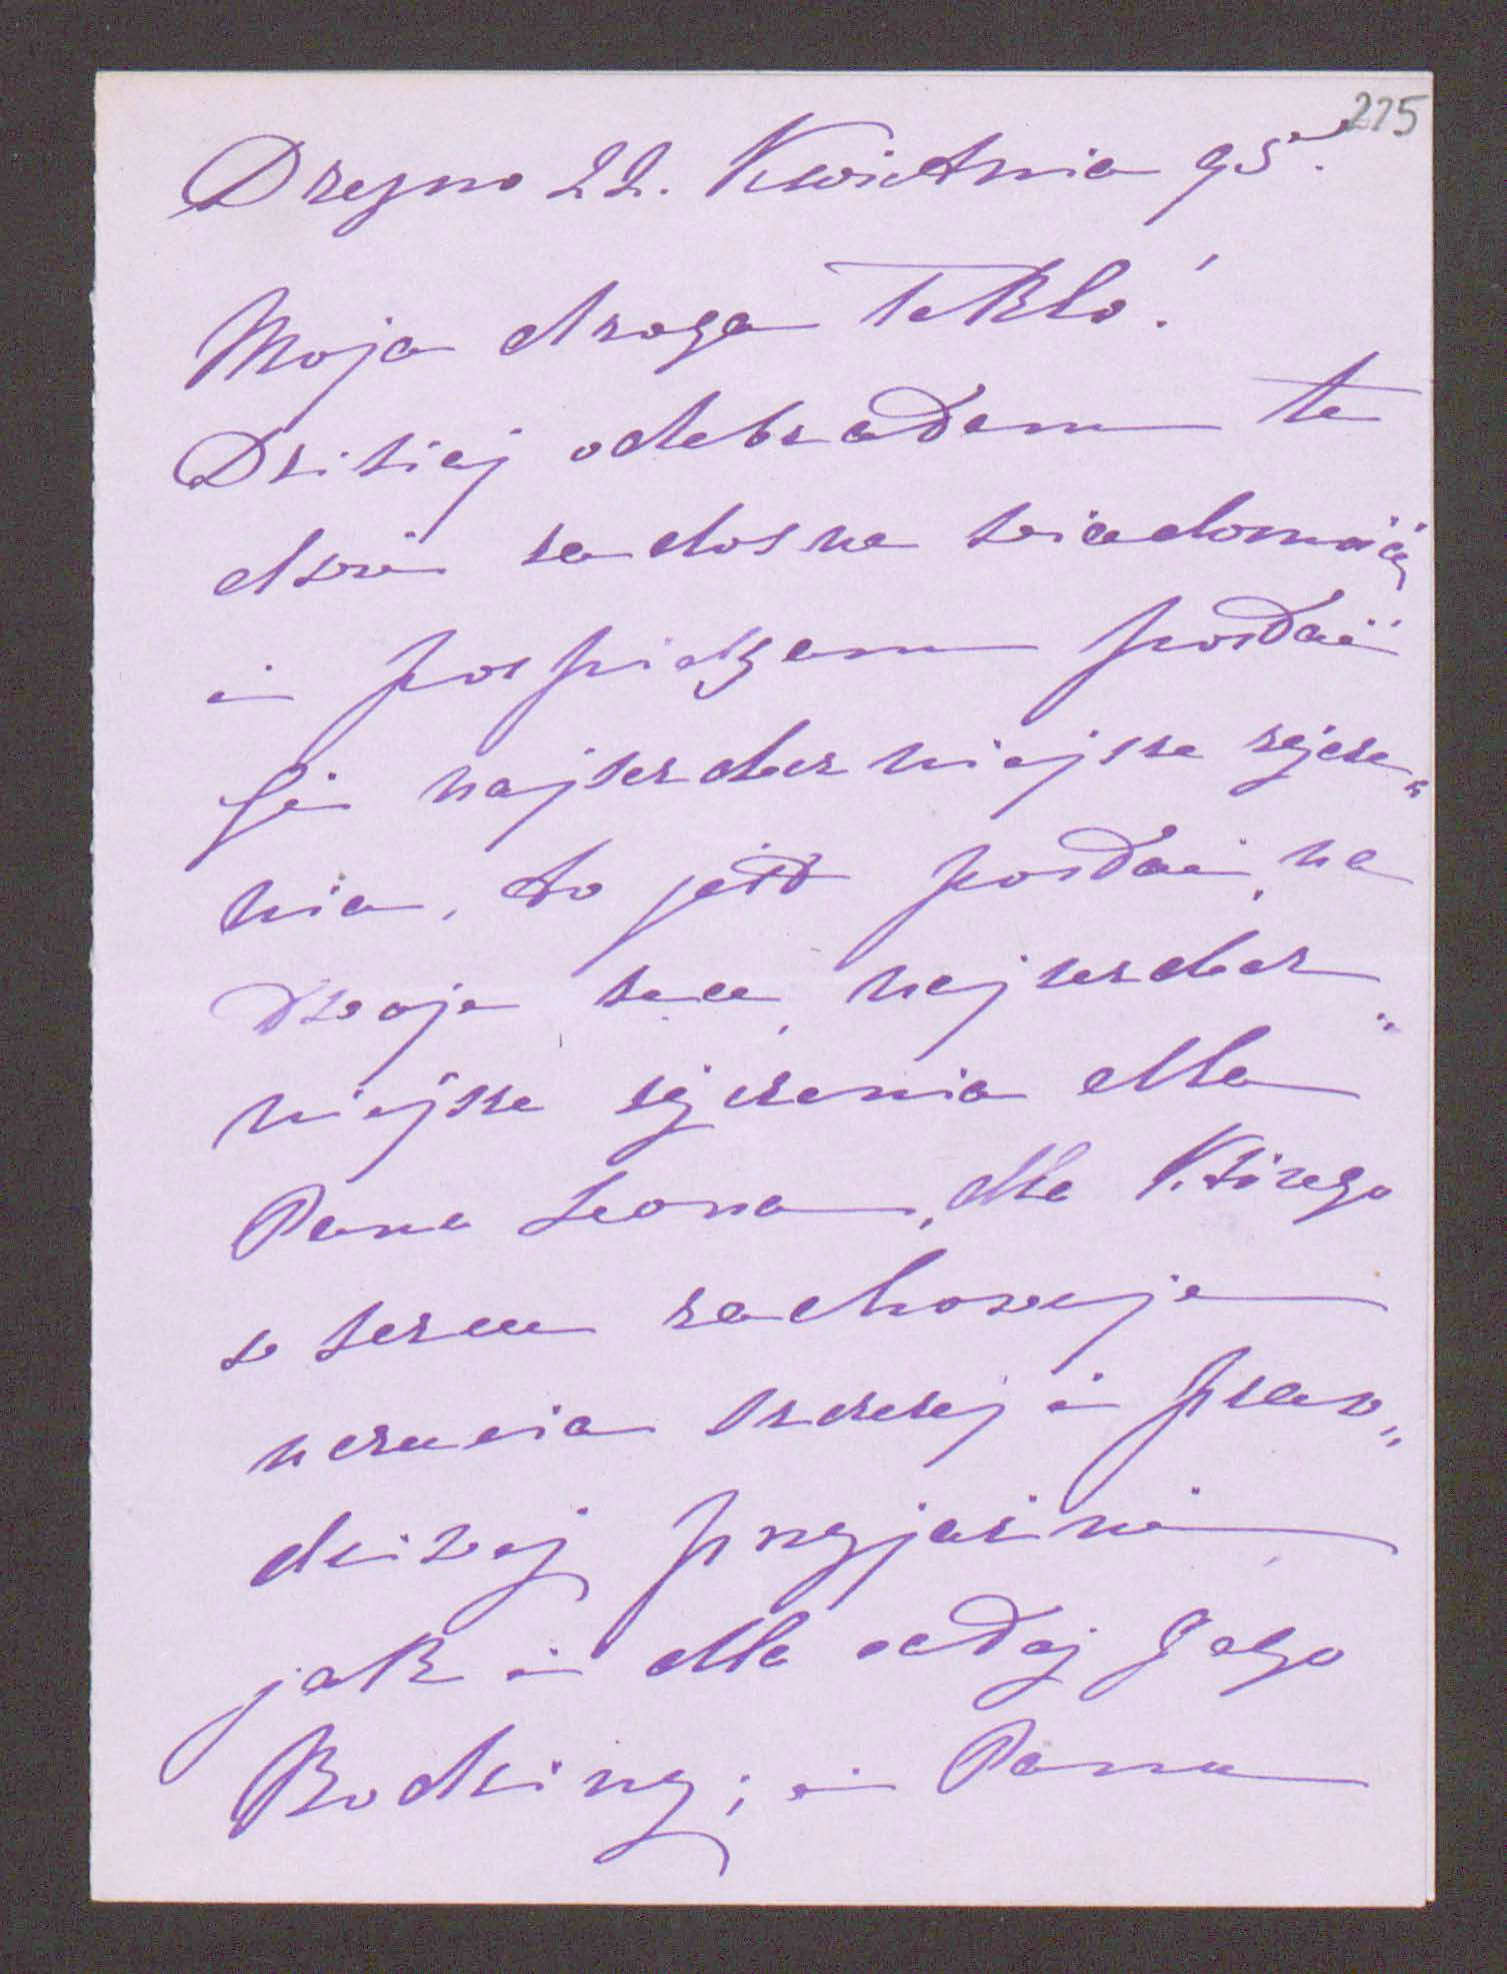 275
Drezno 22. Kwietnia 95.
Moja droga Teklo!
Dzisiaj odebrałem te
dwie radosne wiadomości
i pospieszam posłać
Ci najserdeczniejsze życze„
nia, to jest posłać na
Twoje ręce najserdecz„
niejsze życzenia dla
Pana Leona, dla Którego
w sercu zachowuję
uczucia szczerej i praw„
dziwej przyjaźni
jak i dla całej Jego
Rodziny; i Panu